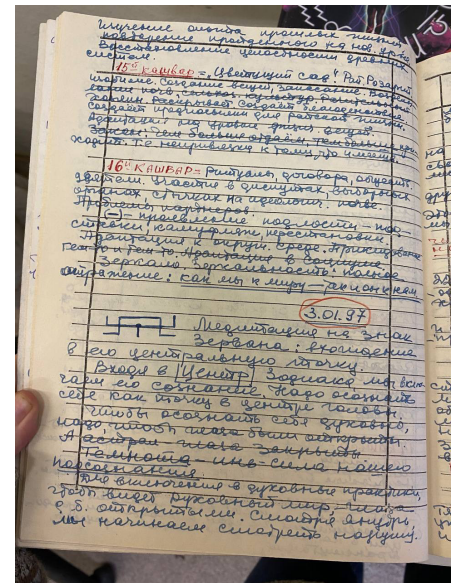 Изучение опыта прошлых жизней,
повторение пройденного на нов. уровне
Восстановление целостности древних
систем.
15й кашвар = "Цветущий сад". Рай. Розарий
Изобилие. Создание вещей, Запасание.
создаёт предпосылки для райской жизни.
Адаптация на уровне физич. вещей.
Закон: Чем больше отдаём, тем больше при-
ходит. Т.е. непривязка к тому, что имеем.
16й КАШВАР = Ритуалы, договора, обществ.
деятели. Участие в диспутах, выборных
органах, стычках на идеологич. почве.
Проблемы партнёров.
(–) = проявление подлости – под-
ставки, камуфляж, перестановки.
Адаптация к окруж. среде.
Адаптация в социуме.
Зеркало. Зеркальность: полное
отражение: как мы к миру – так он к нам.
3.01.97
Медитация на знак
Зервана: вхождение
в его центральную точку.
Входя в Центр Зодиака мы вклю-
чаем его сознание. Надо осознать
себя как точку в центре головы.
Чтобы осознать себя духовно,
надо, чтоб глаза были открыты.
А астрал – глаза закрыты.
Темнота – инь-сила нашего
подсознания.
Для включения в духовные практики,
чтоб видеть духовный мир – глаза
д.б. открытыми. Смотря внутрь,
мы начинаем смотреть наружу.